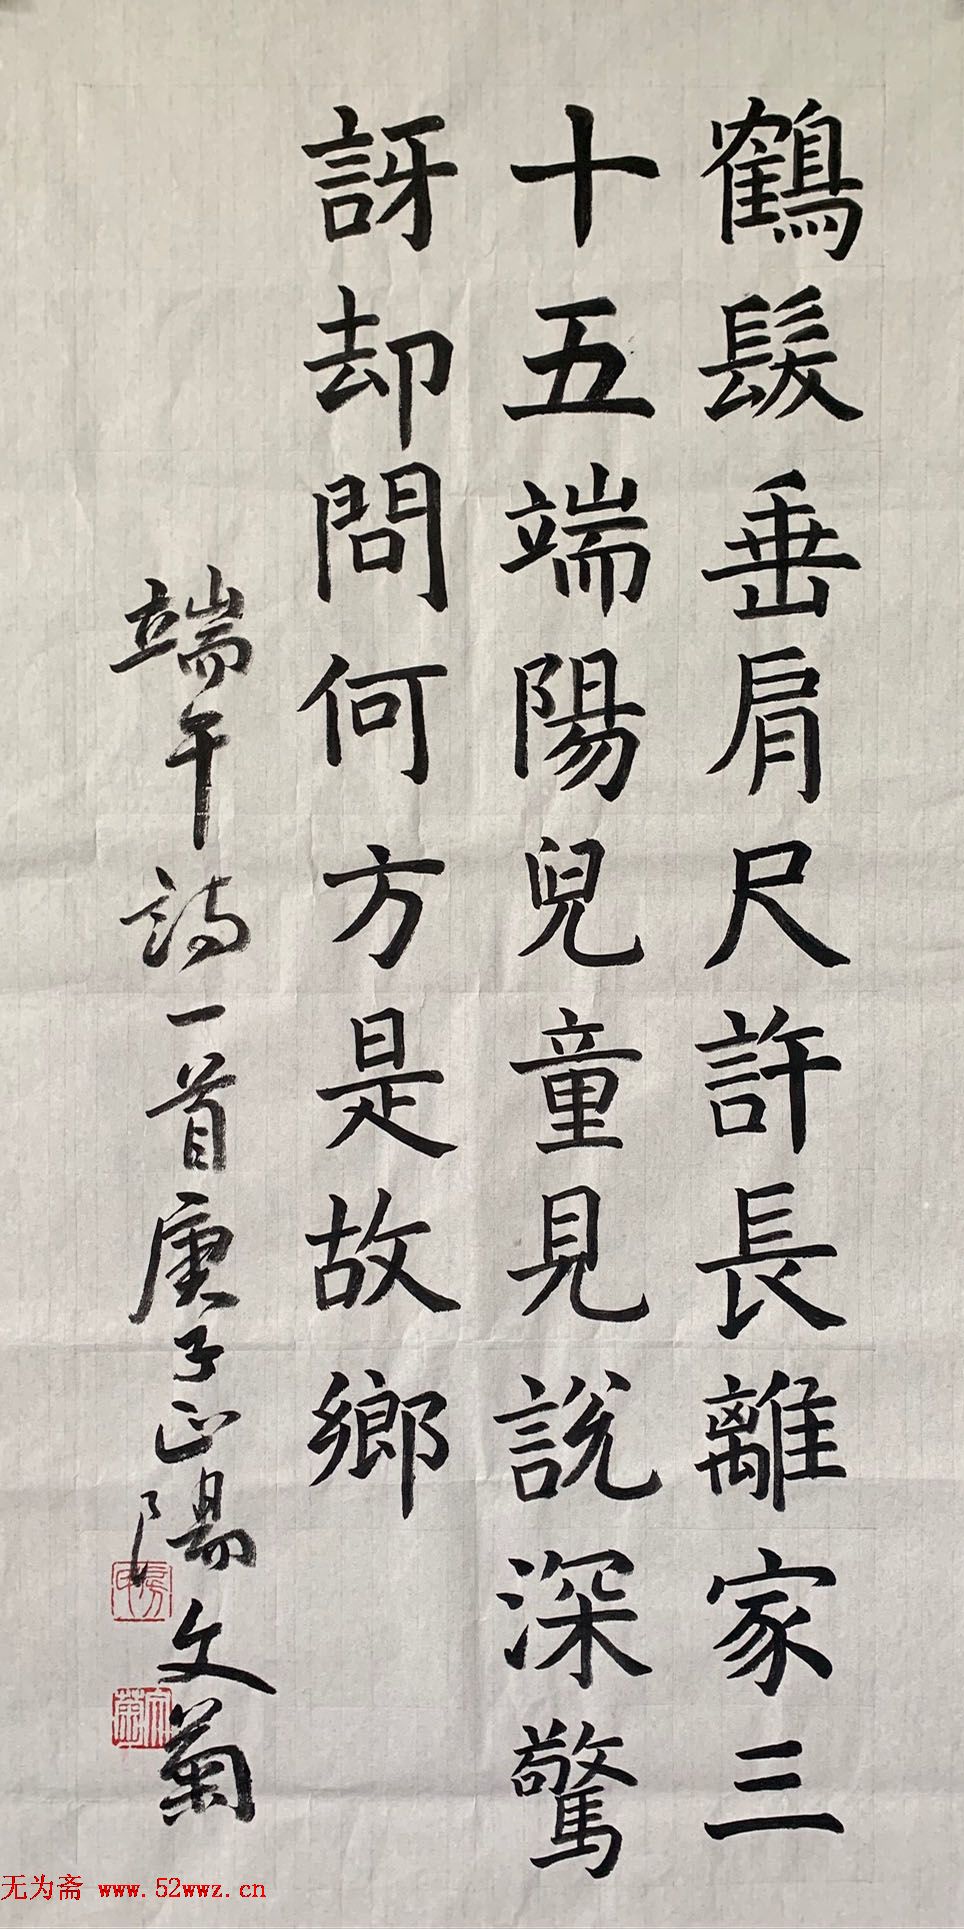 鶴髮垂肩尺許長離家三
十五端陽兒童見說深驚
訝却問何方是故鄉
端午詩一首庚子正陽文菊
无为斋 www.52wwz.cn